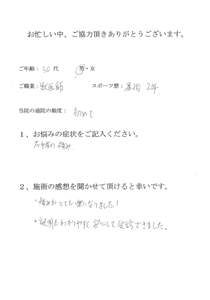 お忙しい中、ご協力頂きありがとうございます。
ご年齢：30代 男・女
ご職業：獣医師 スポーツ歴：柔術 2年
当院の通院の頻度： 初めて
1、お悩みの症状をご記入ください。
の痛み
2、施術の感想を聞かせて頂けると幸いです。
・痛みがとても楽になりました！
・説明もわかりやすく、安心して受診できました。